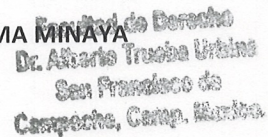 MA MINAYA
Facultad de Derecho
Dr. Alberto Trueba Urbina
San Francisco de
Campeche, Camp., México.